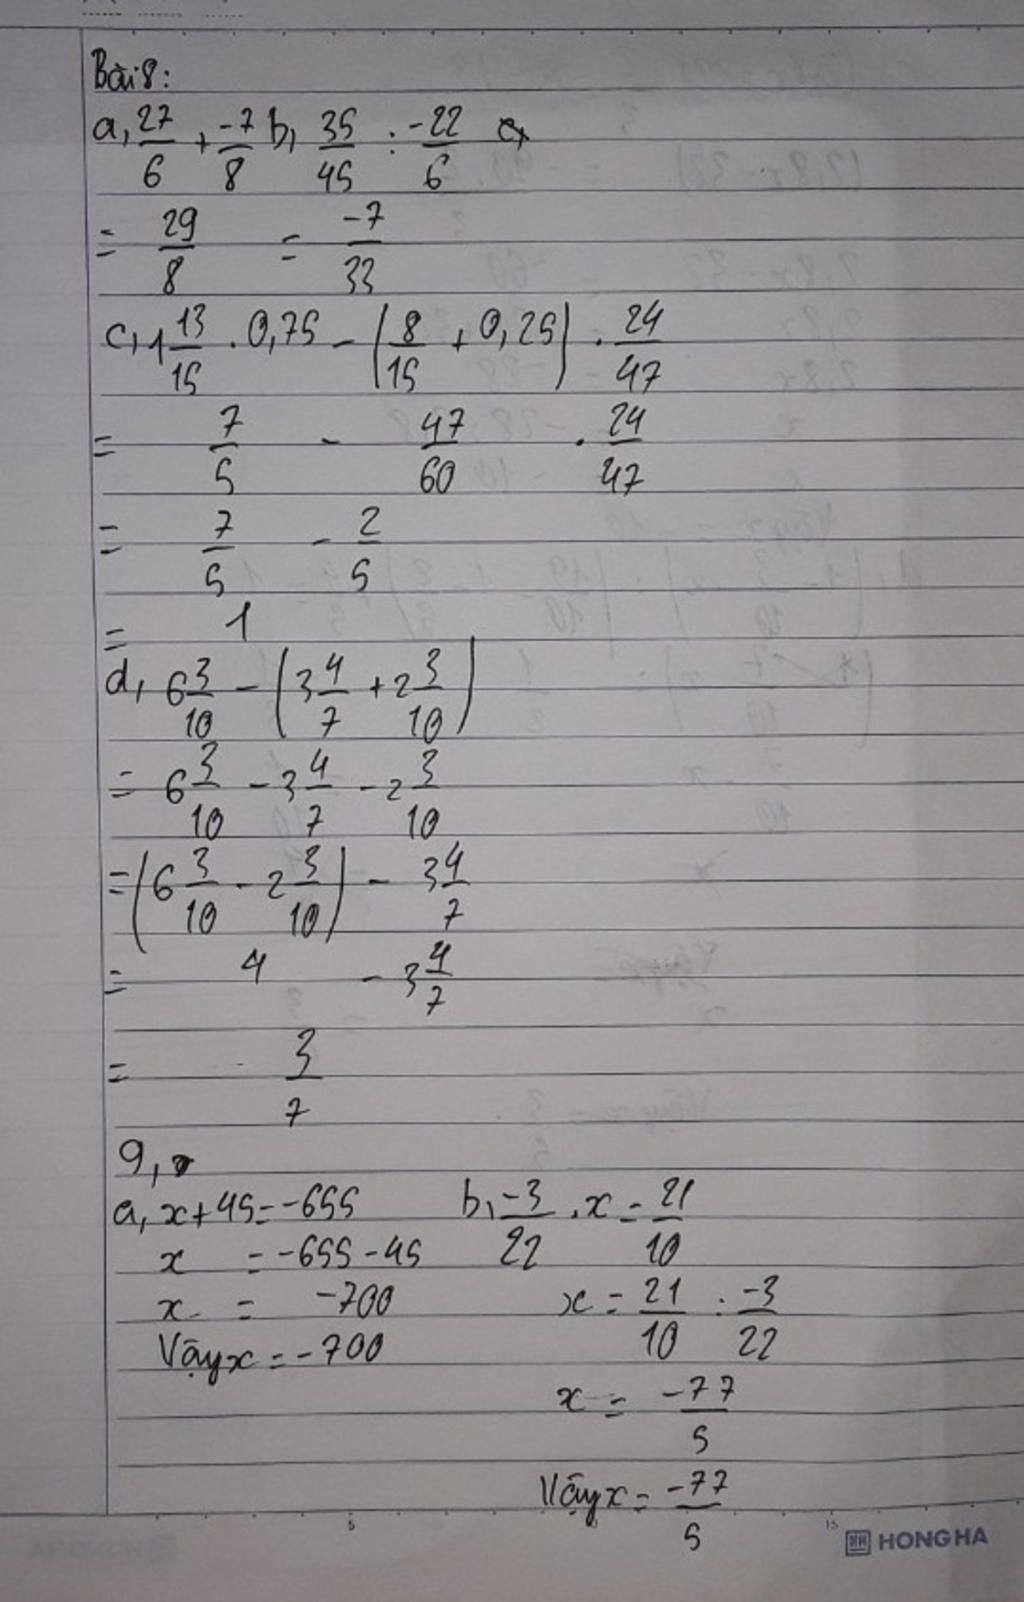 Bài 8:
a, 27/6 + -7/8 b, 35/45 : -22/6
= 29/8 = -7/33
c, 1 13/15 . 0,75 - (8/15 + 0,25) . 24/47
= 7/5 - 47/60 . 24/47
= 7/5 - 2/5
= 1
d, 6 3/10 - (3 4/7 + 2 3/10)
= 6 3/10 - 3 4/7 - 2 3/10
= (6 3/10 - 2 3/10) - 3 4/7
= 4 - 3 4/7
= 3/7
9,
a, x + 45 = -655 b, -3/22 . x = 21/10
x = -655 - 45
x = -700 x = 21/10 : -3/22
Vậy x = -700
x = -77/5
Vậy x = -77/5
HONG HA